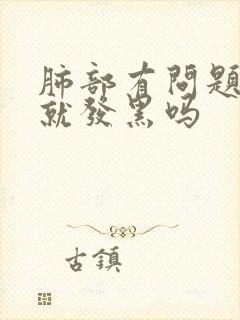 肺部有問題
就發黑嗎
古鎮